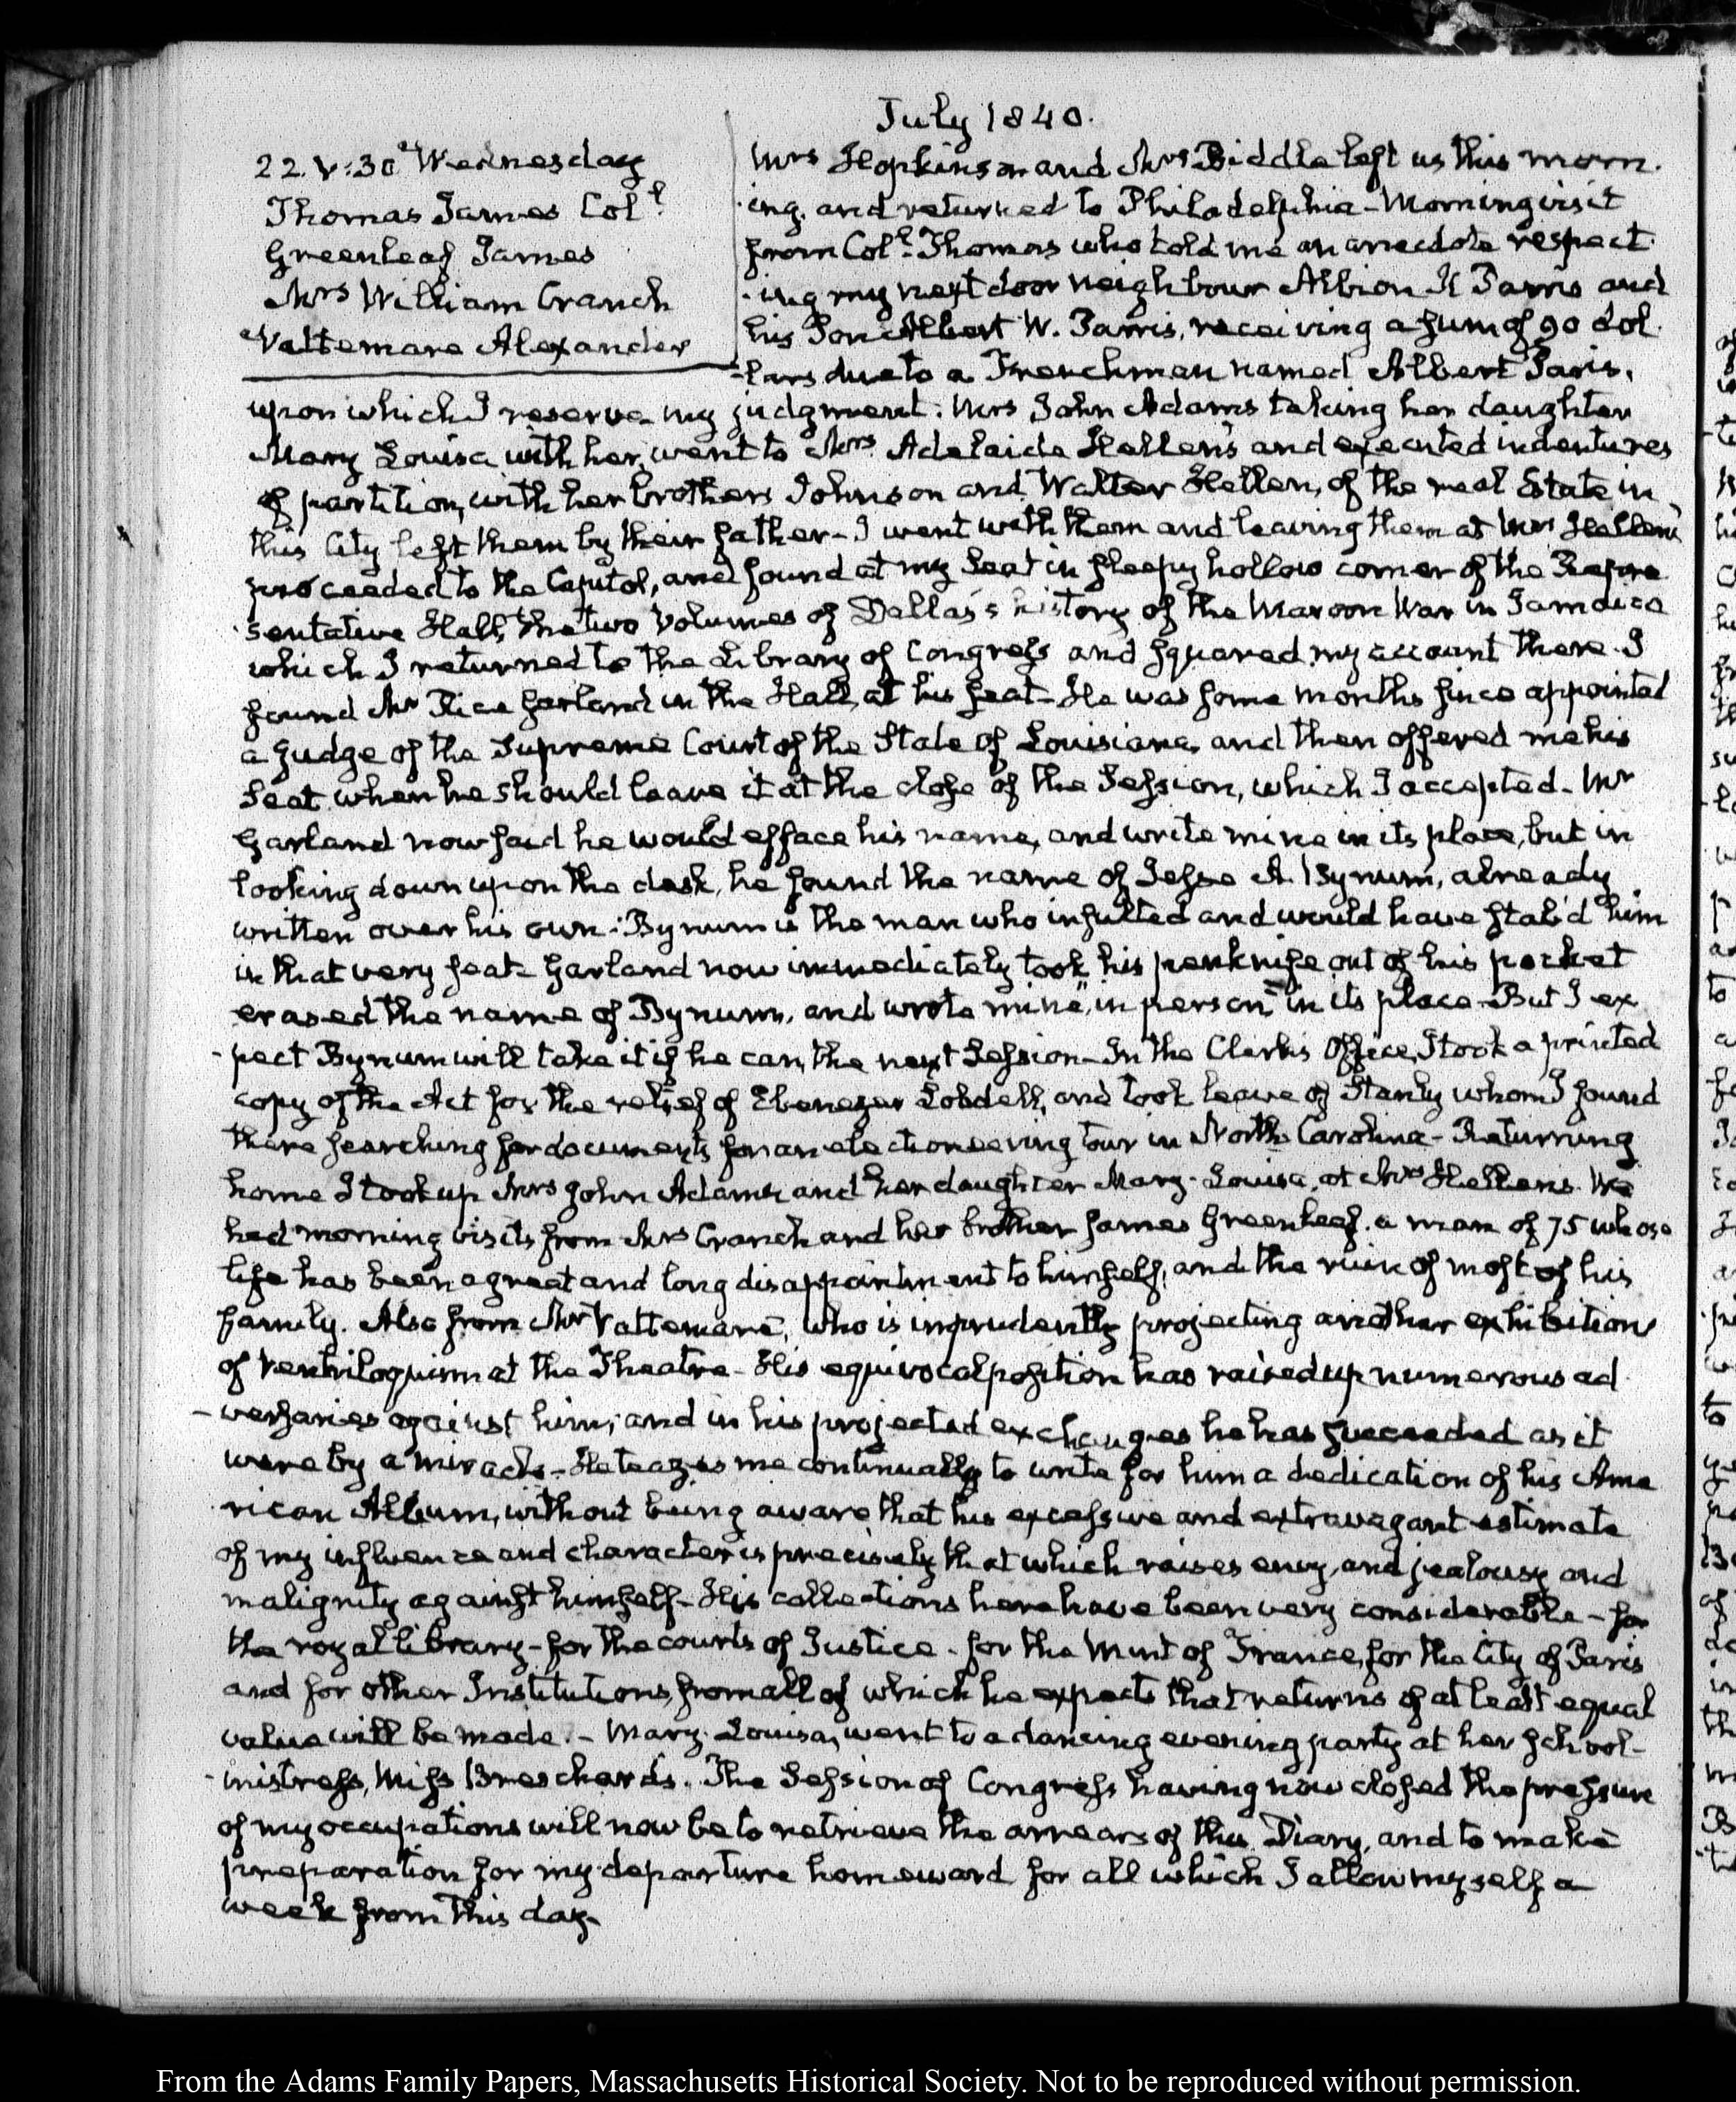 July 1840.
22. V:30. Wednesday
Thomas James Coll.
Greenleaf James
Mrs William Cranch
Vattemare Alexander
Mrs Hopkinson and Mrs Biddle left us this morn-
-ing, and returned to Philadelphia – Morning visit
from Coll. Thomas who told me an anecdote respect-
-ing my next door neighbour Albion K Parris and
his Son Albert W. Parris, receiving a sum of 90 dol-
-lars due to a Frenchman named Albert Paris,
upon which I reserve my judgment. Mrs John Adams taking her daughter
Mary Louisa with her, went to Mrs Adelaide Hellen's and executed indentures
of partition, with her brothers Johnson and Walter Hellen, of the real Estate in
this City left them by their father – I went with them and leaving them at Mrs Hellen's
proceeded to the Capitol, and found at my Seat in sleepy hollow corner of the Repre
-sentative Hall, the two Volumes of Dallas's history of the Maroon War in Jamaica
which I returned to the Library of Congress and squared my account there. I
found Mr Rice Garland in the Hall, at his seat – He was some months since appointed
a judge of the Supreme Court of the State of Louisiana, and then offered me his
Seat when he should leave it at the close of the Session, which I accepted – Mr
Garland now said he would efface his name, and write mine in its place, but in
looking down upon the desk, he found the name of Jesse A. Bynum, already
written over his own. Bynum is the man who insulted and would have stab'd him
in that very seat – Garland now immediately took his penknife out of his pocket
erased the name of Bynum, and wrote mine "in person" in its place – But I ex
-pect Bynum will take it if he can, the next Session – In the Clerk's Office, I took a printed
copy of the Act for the relief of Ebenezer Lobdell, and took leave of Stanly whom I found
there searching for documents for an electioneering tour in North Carolina – Returning
home I took up Mrs John Adams and her daughter Mary-Louisa, at Mrs Hellen's. We
had morning visits from Mrs Cranch and her brother James Greenleaf. a man of 75 whose
life has been a great and long disappointment to himself, and the ruin of most of his
family. Also from Mr Vattemare, who is imprudently projecting another exhibition
of Ventriloquism at the Theatre – His equivocal position has raised up numerous ad
-versaries against him, and in his projected exchanges he has succeeded as it
were by a miracle – He teazes me continually to write for him a dedication of his Ame
rican Album, without being aware that his excessive and extravagant estimate
of my influence and character is precisely that which raises envy, and jealousy and
malignity against himself – His collections here have been very considerable – for
the royal library – for the courts of Justice – for the Mint of France, for the City of Paris
and for other Institutions, from all of which he expects that returns of at least equal
value will be made. – Mary-Louisa, went to a dancing evening party at her school-
-mistress, Miss Breschard's. The Session of Congress having now closed the pressure
of my occupations will now be to retrieve the arrears of this Diary, and to make
preparation for my departure homeward for all which I allow myself a
week from this day –
From the Adams Family Papers, Massachusetts Historical Society. Not to be reproduced without permission.